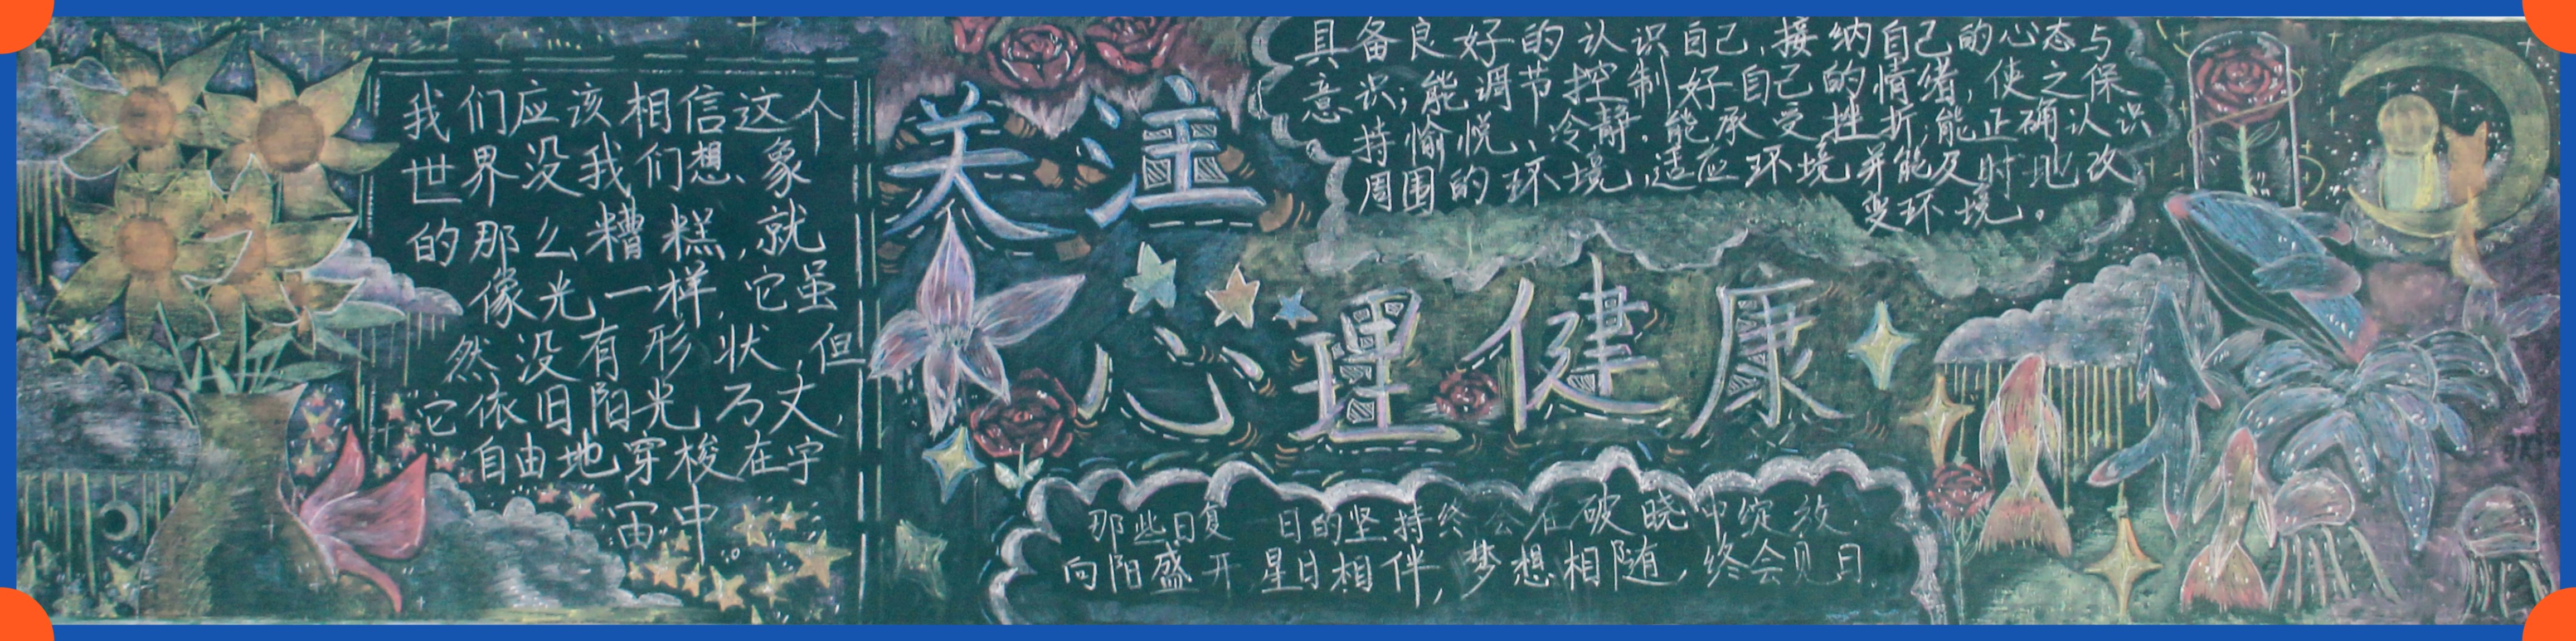 我们应该相信这个
世界没我们想象
的那么糟糕,就
像光一样,它虽
然没有形状,但
它依旧阳光万丈,
自由地穿梭在宇
宙中
关注
心理健康
具备良好的认识自己,接纳自己的心态与
意识;能调节控制好自己的情绪,使之保
持愉悦、冷静,能承受挫折;能正确认识
周围的环境,适应环境并能及时地改
变环境。
那些日复 日的坚持终会在破晓中绽放.
向阳盛开 星日相伴,梦想相随,终会见日